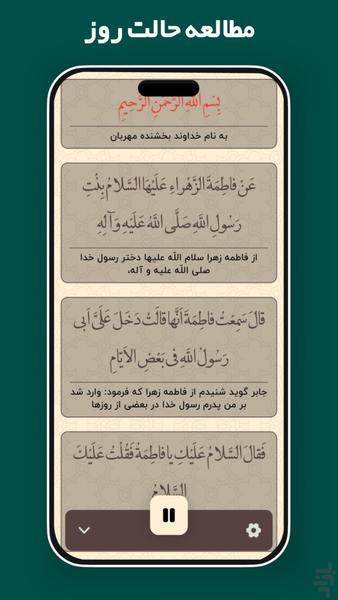 مطالعه حالت روز
بِسْمِ اللَّهِ الرَّحْمنِ الرَّحِيمِ
به نام خداوند بخشنده مهربان
عَنْ فاطِمَةَ الزَّهْراءِ عَلَيْهَا السَّلامُ بِنْتِ
رَسُولِ اللَّهِ صَلَّى اللَّهُ عَلَيْهِ وَآلِهِ
از فاطمه زهرا سلام اللّه علیها دختر رسول خدا
صلی اللّه علیه و آله،
قالَ سَمِعْتُ فاطِمَةَ أَنَّها قالَتْ دَخَلَ عَلَىَّ أَبى
رَسُولُ اللَّهِ فى بَعْضِ الأَيَّامِ
جابر گوید شنیدم از فاطمه زهرا که فرمود: وارد شد
بر من پدرم رسول خدا در بعضی از روزها
فَقالَ السَّلامُ عَلَيْكِ يا فاطِمَةُ فَقُلْتُ عَلَيْكَ
السَّلامُ